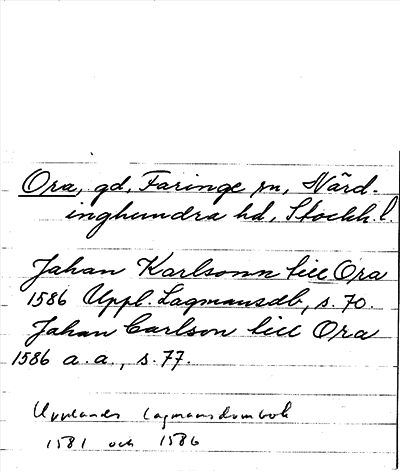 Ora, gd, Faringe sn, Närd-
inghundra hd, Stockh. l.
Johan Karlsonn till Ora
1586 Uppl. Lagmansdb, s. 70.
Johan Carlson till Ora
1586 a. a., s. 77.
Upplands lagmansdombok
1581 och 1586